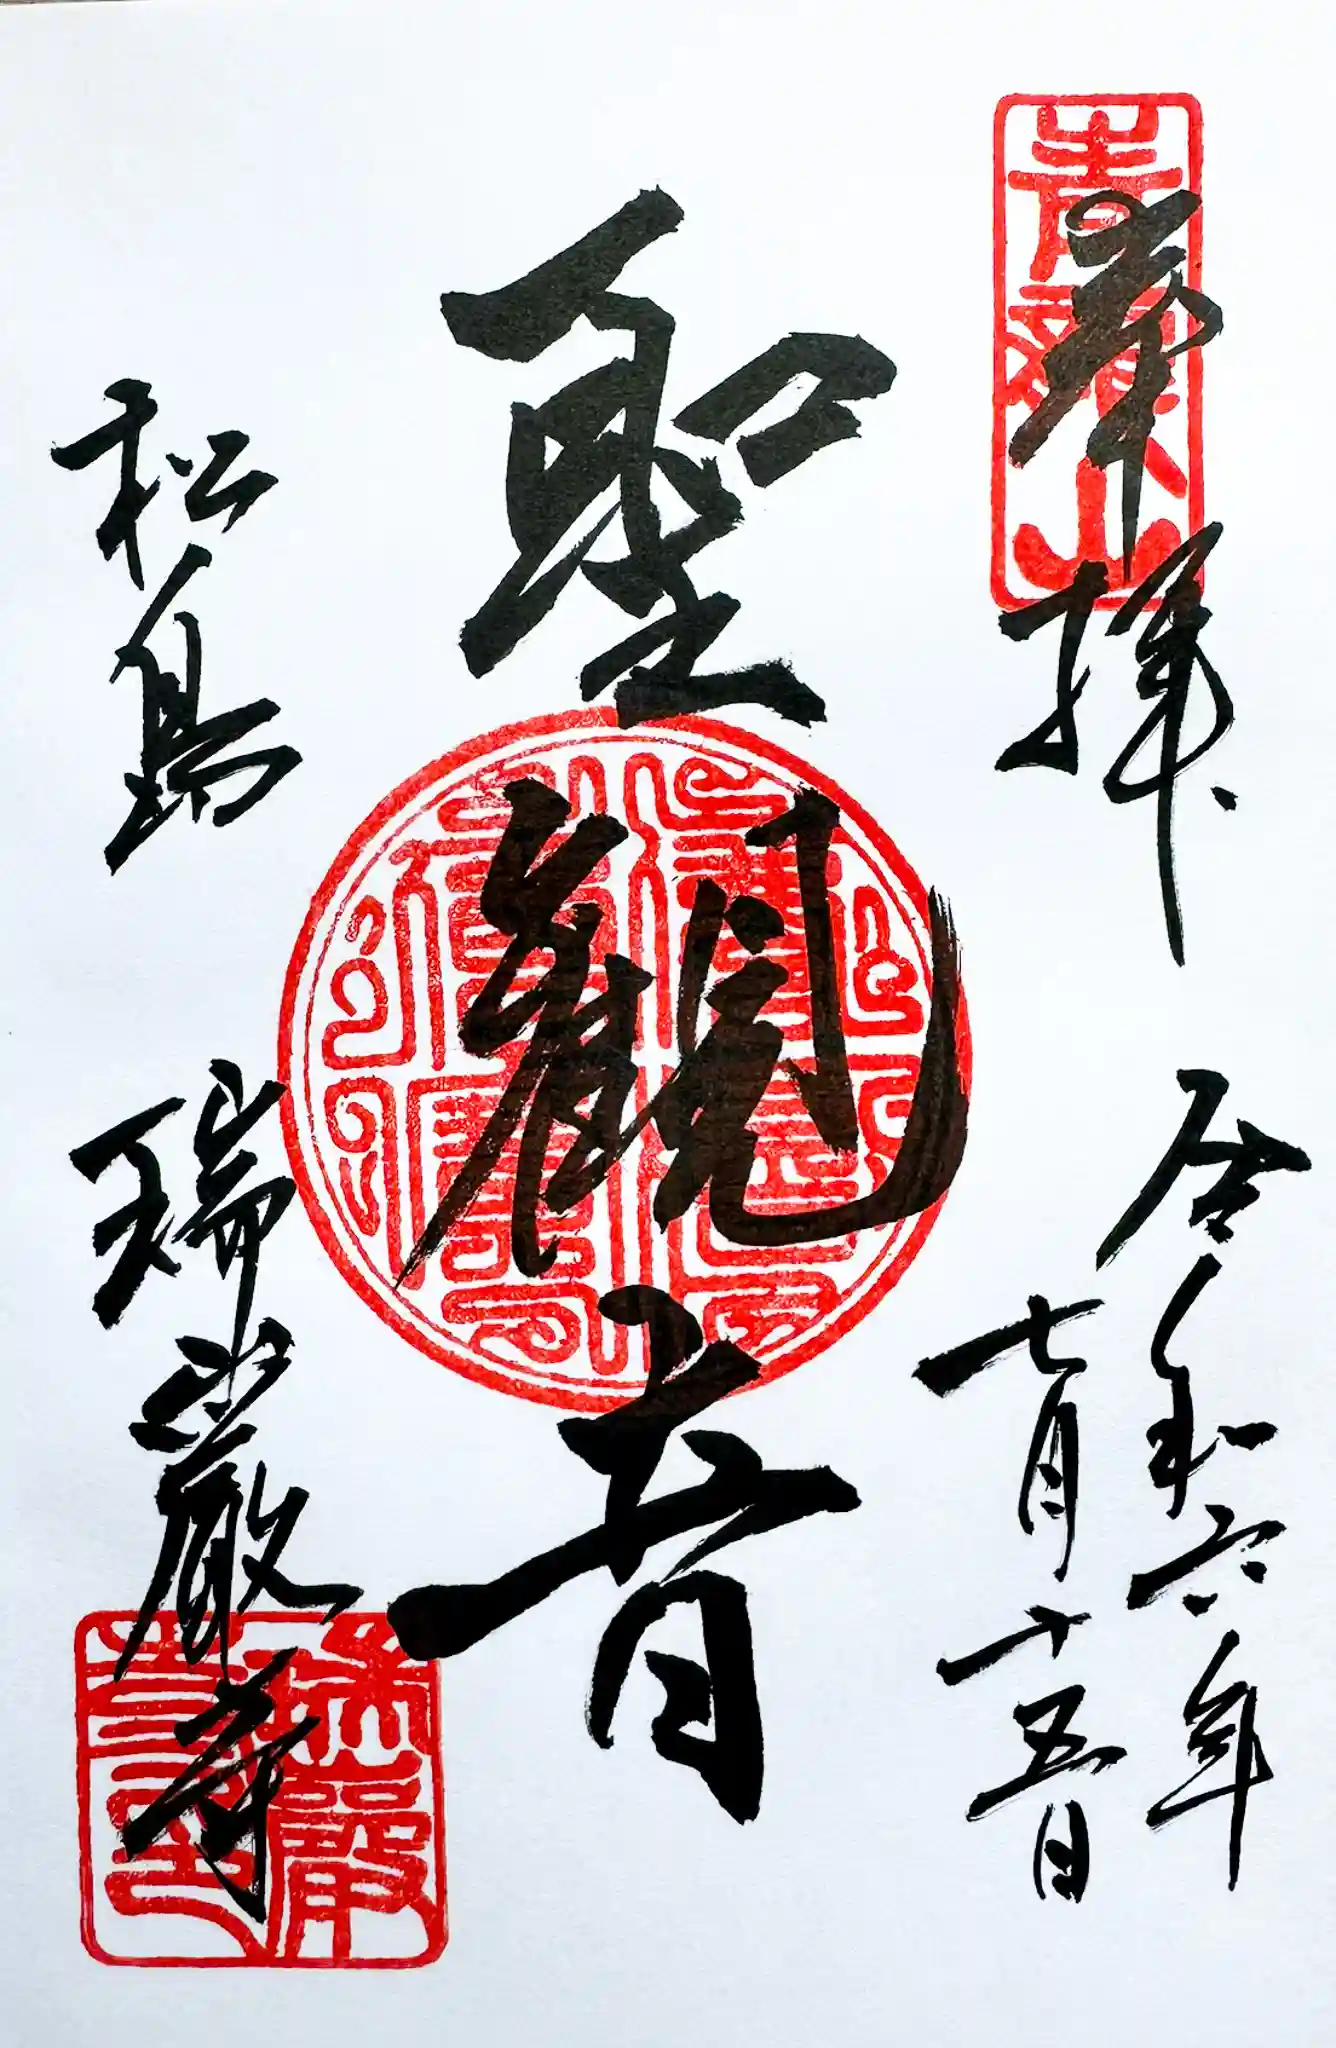 奉拝
令和六年
七月十五日
聖観音
松島
瑞巌寺
青龍山
瑞巌寺印